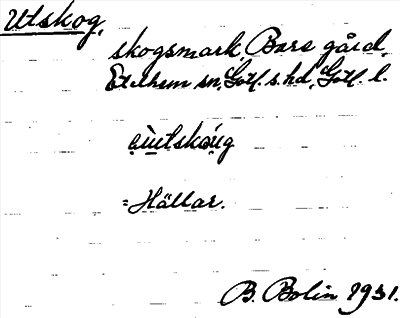 Utskog,
skogsmark, Bars gård,
Etelhem sn, Gotl. s. hd, Gotl. l.
= Hällar.
B. Bolin 1931.